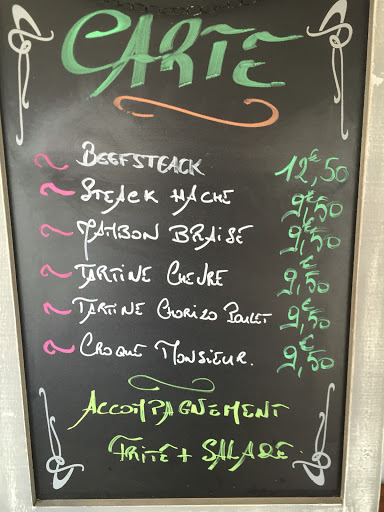 CARTE
BEEFSTEACK 12€,50
STEACK HACHÉ 9€,50
JAMBON BRAISÉ 9€,50
TARTINE CHEVRE 9€,50
TARTINE CHORIZO POULET 9€,50
CROQUE MONSIEUR. 9€,50
ACCOMPAGNEMENT
FRITE + SALADE.